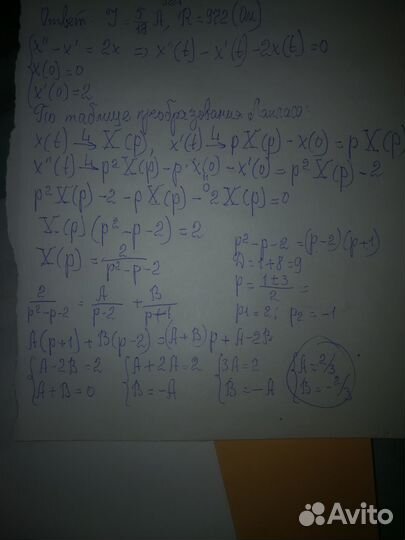 Ответ: I = 5/18 A, R = 972 (Ом)
{ x'' - x' = 2x ⇒ x'(t) - x'(t) - 2x(t) = 0
x(0) = 0
x'(0) = 2
По таблице преобразования Лапласа:
x(t) → X(p), x'(t) → pX(p) - x(0) = pX(p)
x''(t) → p²X(p) - p·x(0) - x'(0) = p²X(p) - 2
p²X(p) - 2 - pX(p) - 2X(p) = 0
X(p)(p² - p - 2) = 2
X(p) = 2/(p² - p - 2)
p² - p - 2 = (p - 2)(p + 1)
D = 1 + 8 = 9
p = (1 + 3)/2 =
p1 = 2; p2 = -1
2/(p² - p - 2) = A/(p - 2) + B/(p + 1)
A(p + 1) + B(p - 2) = (A + B)p + A - 2B
{ A - 2B = 2 { A + 2A = 2 { 3A = 2 { A = 2/3
{ A + B = 0 { B = -A { B = -A { B = -2/3
Avito